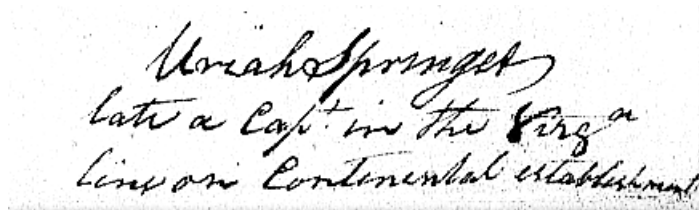 Uriah Springer
late a Capt in the Virga
line on Continental establishment